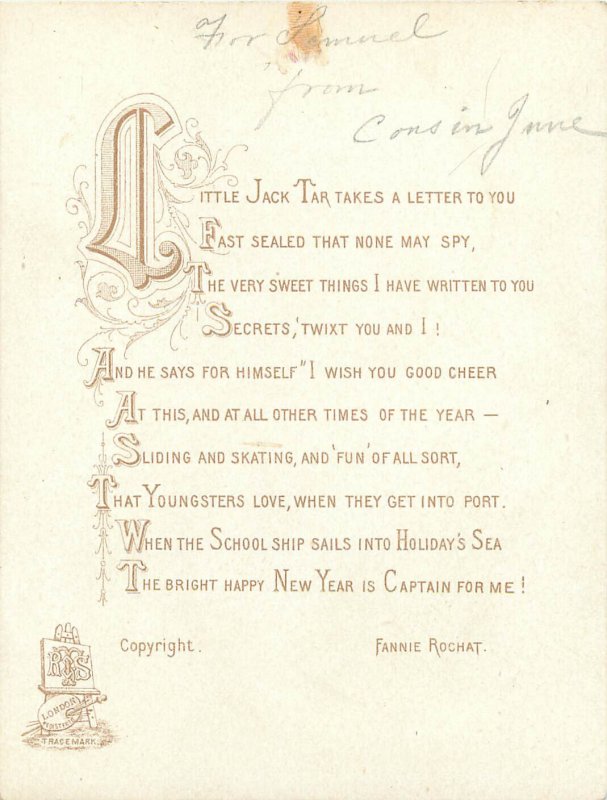 For Samuel
from
Cousin June
LITTLE JACK TAR TAKES A LETTER TO YOU
FAST SEALED THAT NONE MAY SPY,
THE VERY SWEET THINGS I HAVE WRITTEN TO YOU
SECRETS, 'TWIXT YOU AND I!
AND HE SAYS FOR HIMSELF "I WISH YOU GOOD CHEER
AT THIS, AND AT ALL OTHER TIMES OF THE YEAR —
SLIDING AND SKATING, AND 'FUN' OF ALL SORT,
THAT YOUNGSTERS LOVE, WHEN THEY GET INTO PORT.
WHEN THE SCHOOL SHIP SAILS INTO HOLIDAY'S SEA
THE BRIGHT HAPPY NEW YEAR IS CAPTAIN FOR ME!
Copyright. FANNIE ROCHAT.
R T S
LONDON
TRADEMARK.